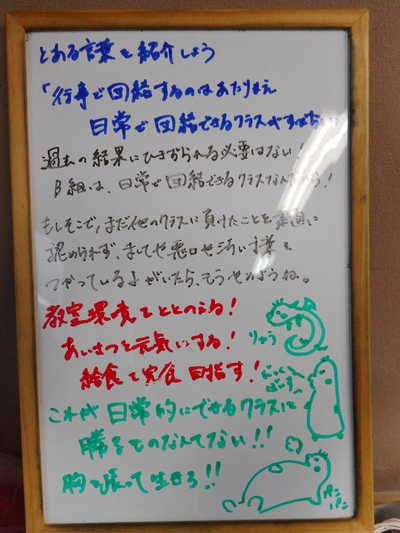 とある言葉を紹介しよう
「行事で団結するのはあたりまえ
日常で団結できるクラスがすばらしい
過去の結果にひきずられる必要はない!
B組は、日常で団結できるクラスなんだから!
もしそこで、まだ他のクラスに負けたことを素直に
認められず、ましてや悪口や汚い言葉を
つかっているよ がいたら、もうせめようね。
教室環境をととのえる!
あいさつを元気にする!
給食で完食目指す!
これが日常的にできるクラスに
勝るものなんてない!!
胸を張って生きろ!!
りゅう
パン
パン